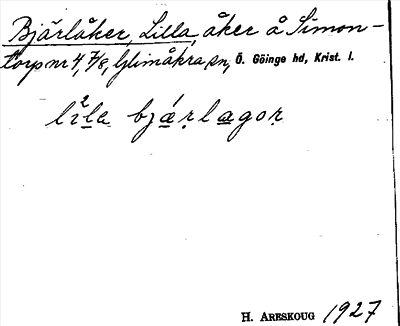 Bjärlåker, Lilla, åker å Simon-
torp nr 4, 7/8, Glimåkra sn, Ö. Göinge hd, Krist. l.
lìla bjǽṛlagoṛ
H. ARESKOUG 1927